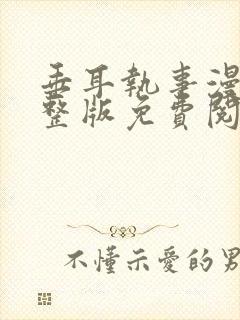 垂耳執事漫
整版免費閱
不懂示愛的男